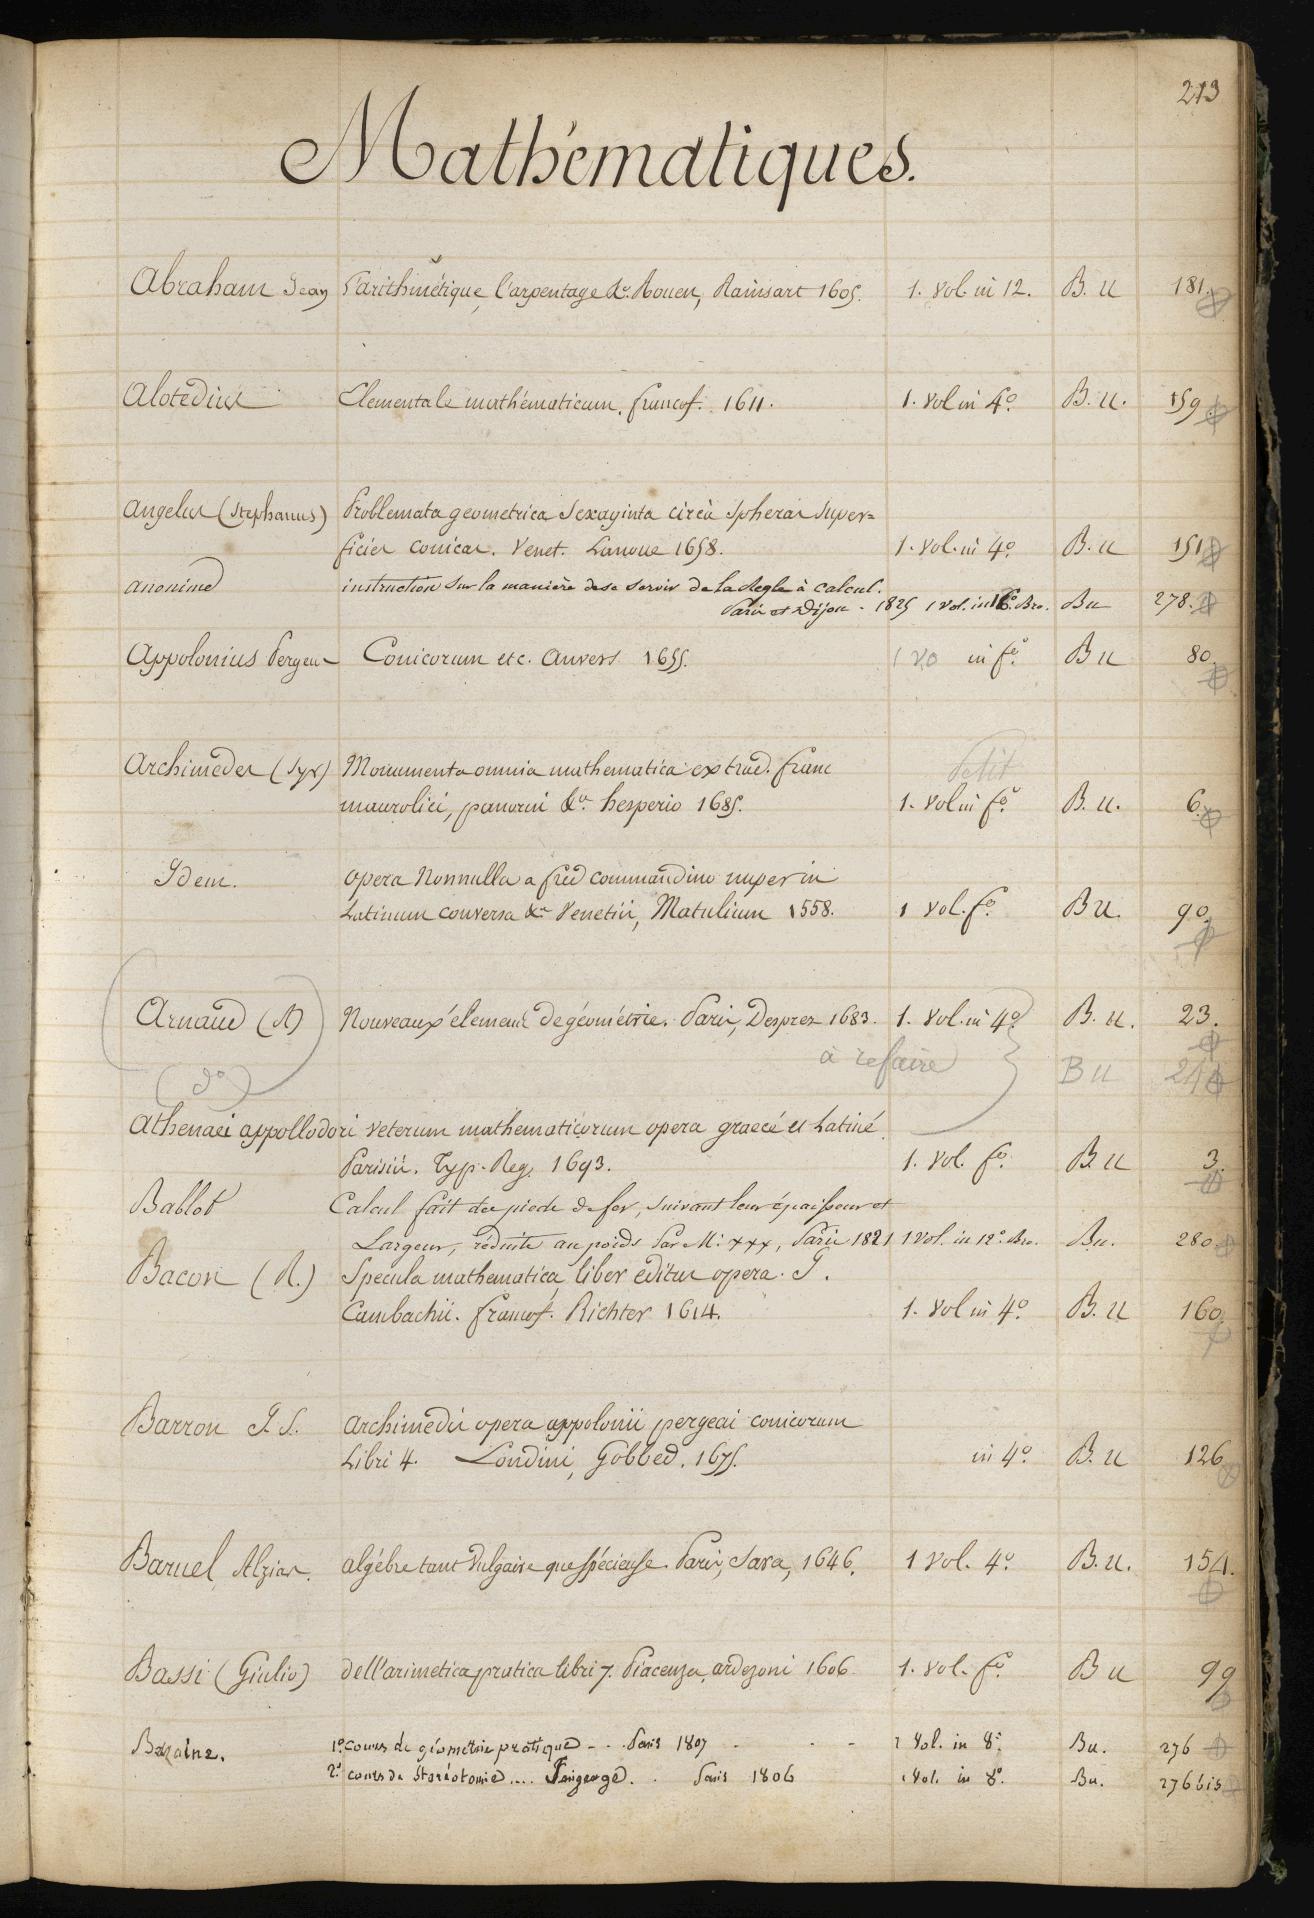 213
Mathématiques.
Abraham Jean L'arithmétique, l'arpentage &c. Rouen, Rainsart 1605. 1. Vol in 12. B. U 181.
Alotedius Elementale mathématicum. francof. 1611. 1. Vol in 4º. B. U. 159
Angelus (Stephanus) Problemata geometrica Sexaginta circà Spheras Super=
ficies conicas. Venet. Lanoue 1658. 1. Vol. in 4º. B. U 151
anonime instruction sur la manière de se servir de la Regle à calcul.
Paris et Dijon. 1825 1 Vol. in 16º. Bro. Bu 278.
Appolonius Pergeus Conicorum etc. Anvers 1655. 1 vo in fº. B U 80.
Archimedes (Syr) Monumenta omnia mathematica ex trad. franc Petit
maurolici, panormi &a. hesperio 1685. 1. Vol in fº. B. U. 6.
Idem. opera Nonnulla a fred commandino nuper in
Latinum conversa &a Venetiis, Matulium 1558. 1 Vol. fº. B U. 90.
Arnaud (A) Nouveaux élemens de géométrie. Paris, Desprez 1683. 1. Vol. in 4º. B. U. 23.
(dº) à refaire B U
Athenaei appollodori veterum mathematicorum opera graecé et Latiné.
Parisiis. Typ. Reg. 1693. 1. Vol. fº. B. U 3.
Ballot Calcul fait des pieds de fer, suivant leur épaisseur et
Largeur, réduits au poids Par Mr. xxx, Paris 1821 1 Vol. in 12º. Bro. Bu. 280
Bacon (R.) Specula mathematica liber editus opera. J.
Cambachii. francof. Richter 1614. 1. Vol in 4º. B. U 160.
Barron J. S. Archimedis opera appolonii pergeai conicorum
Libri 4. Londini, Gobbed. 1675. in 4º. B. U 126
Baruel, Alzias. algébre tant Vulgaire que Spécieuse. Paris, Sara, 1646. 1 Vol. 4º. B. U. 154.
Bassi (Giulio) dell'arimetica pratica libri 7. Piacenza, ardezoni 1606. 1. Vol. fº. B U 99
Bazaine. 1º. Cours de géométrie pratique - - . Paris 1807 - - - 1 Vol. in 8º. Bu. 276
2º. Cours de Stéréotomie .... . Paris 1806 1 Vol. in 8º. Bu. 276 bis